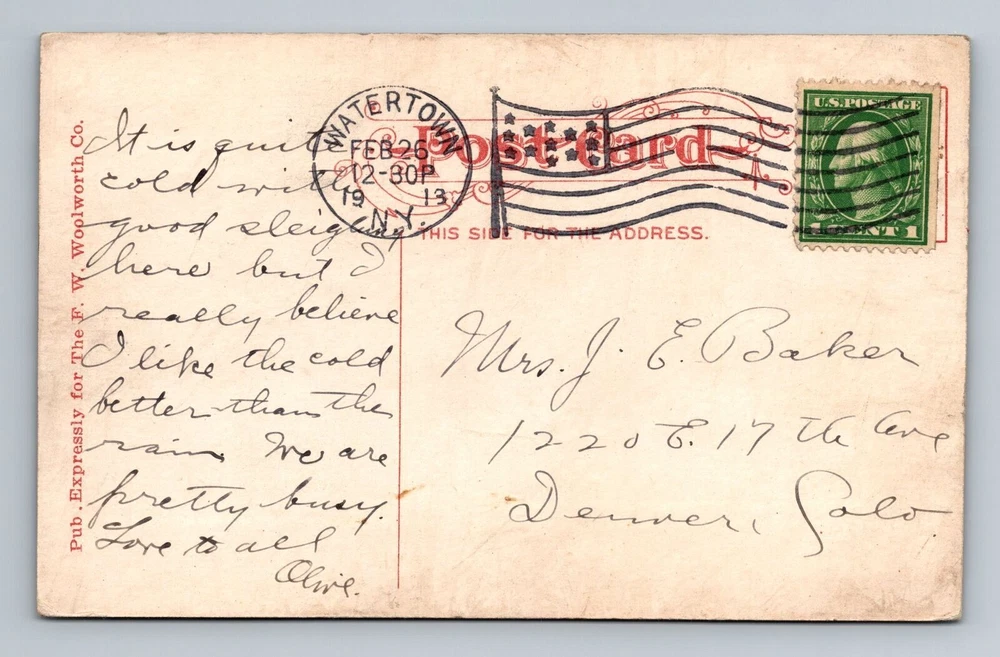 Pub. Expressly for The F. W. Woolworth Co.
It is quite
cold with
good sleighing
here but I
really believe
I like the cold
better than the
rain. We are
pretty busy.
Love to all
Olive.
WATERTOWN
FEB 26
12-30P
19 13
N.Y.
Post Card
THIS SIDE FOR THE ADDRESS.
U.S. POSTAGE
1 CENT 1
Mrs. J. E. Baker
1220 E. 17 th Ave
Denver, Colo